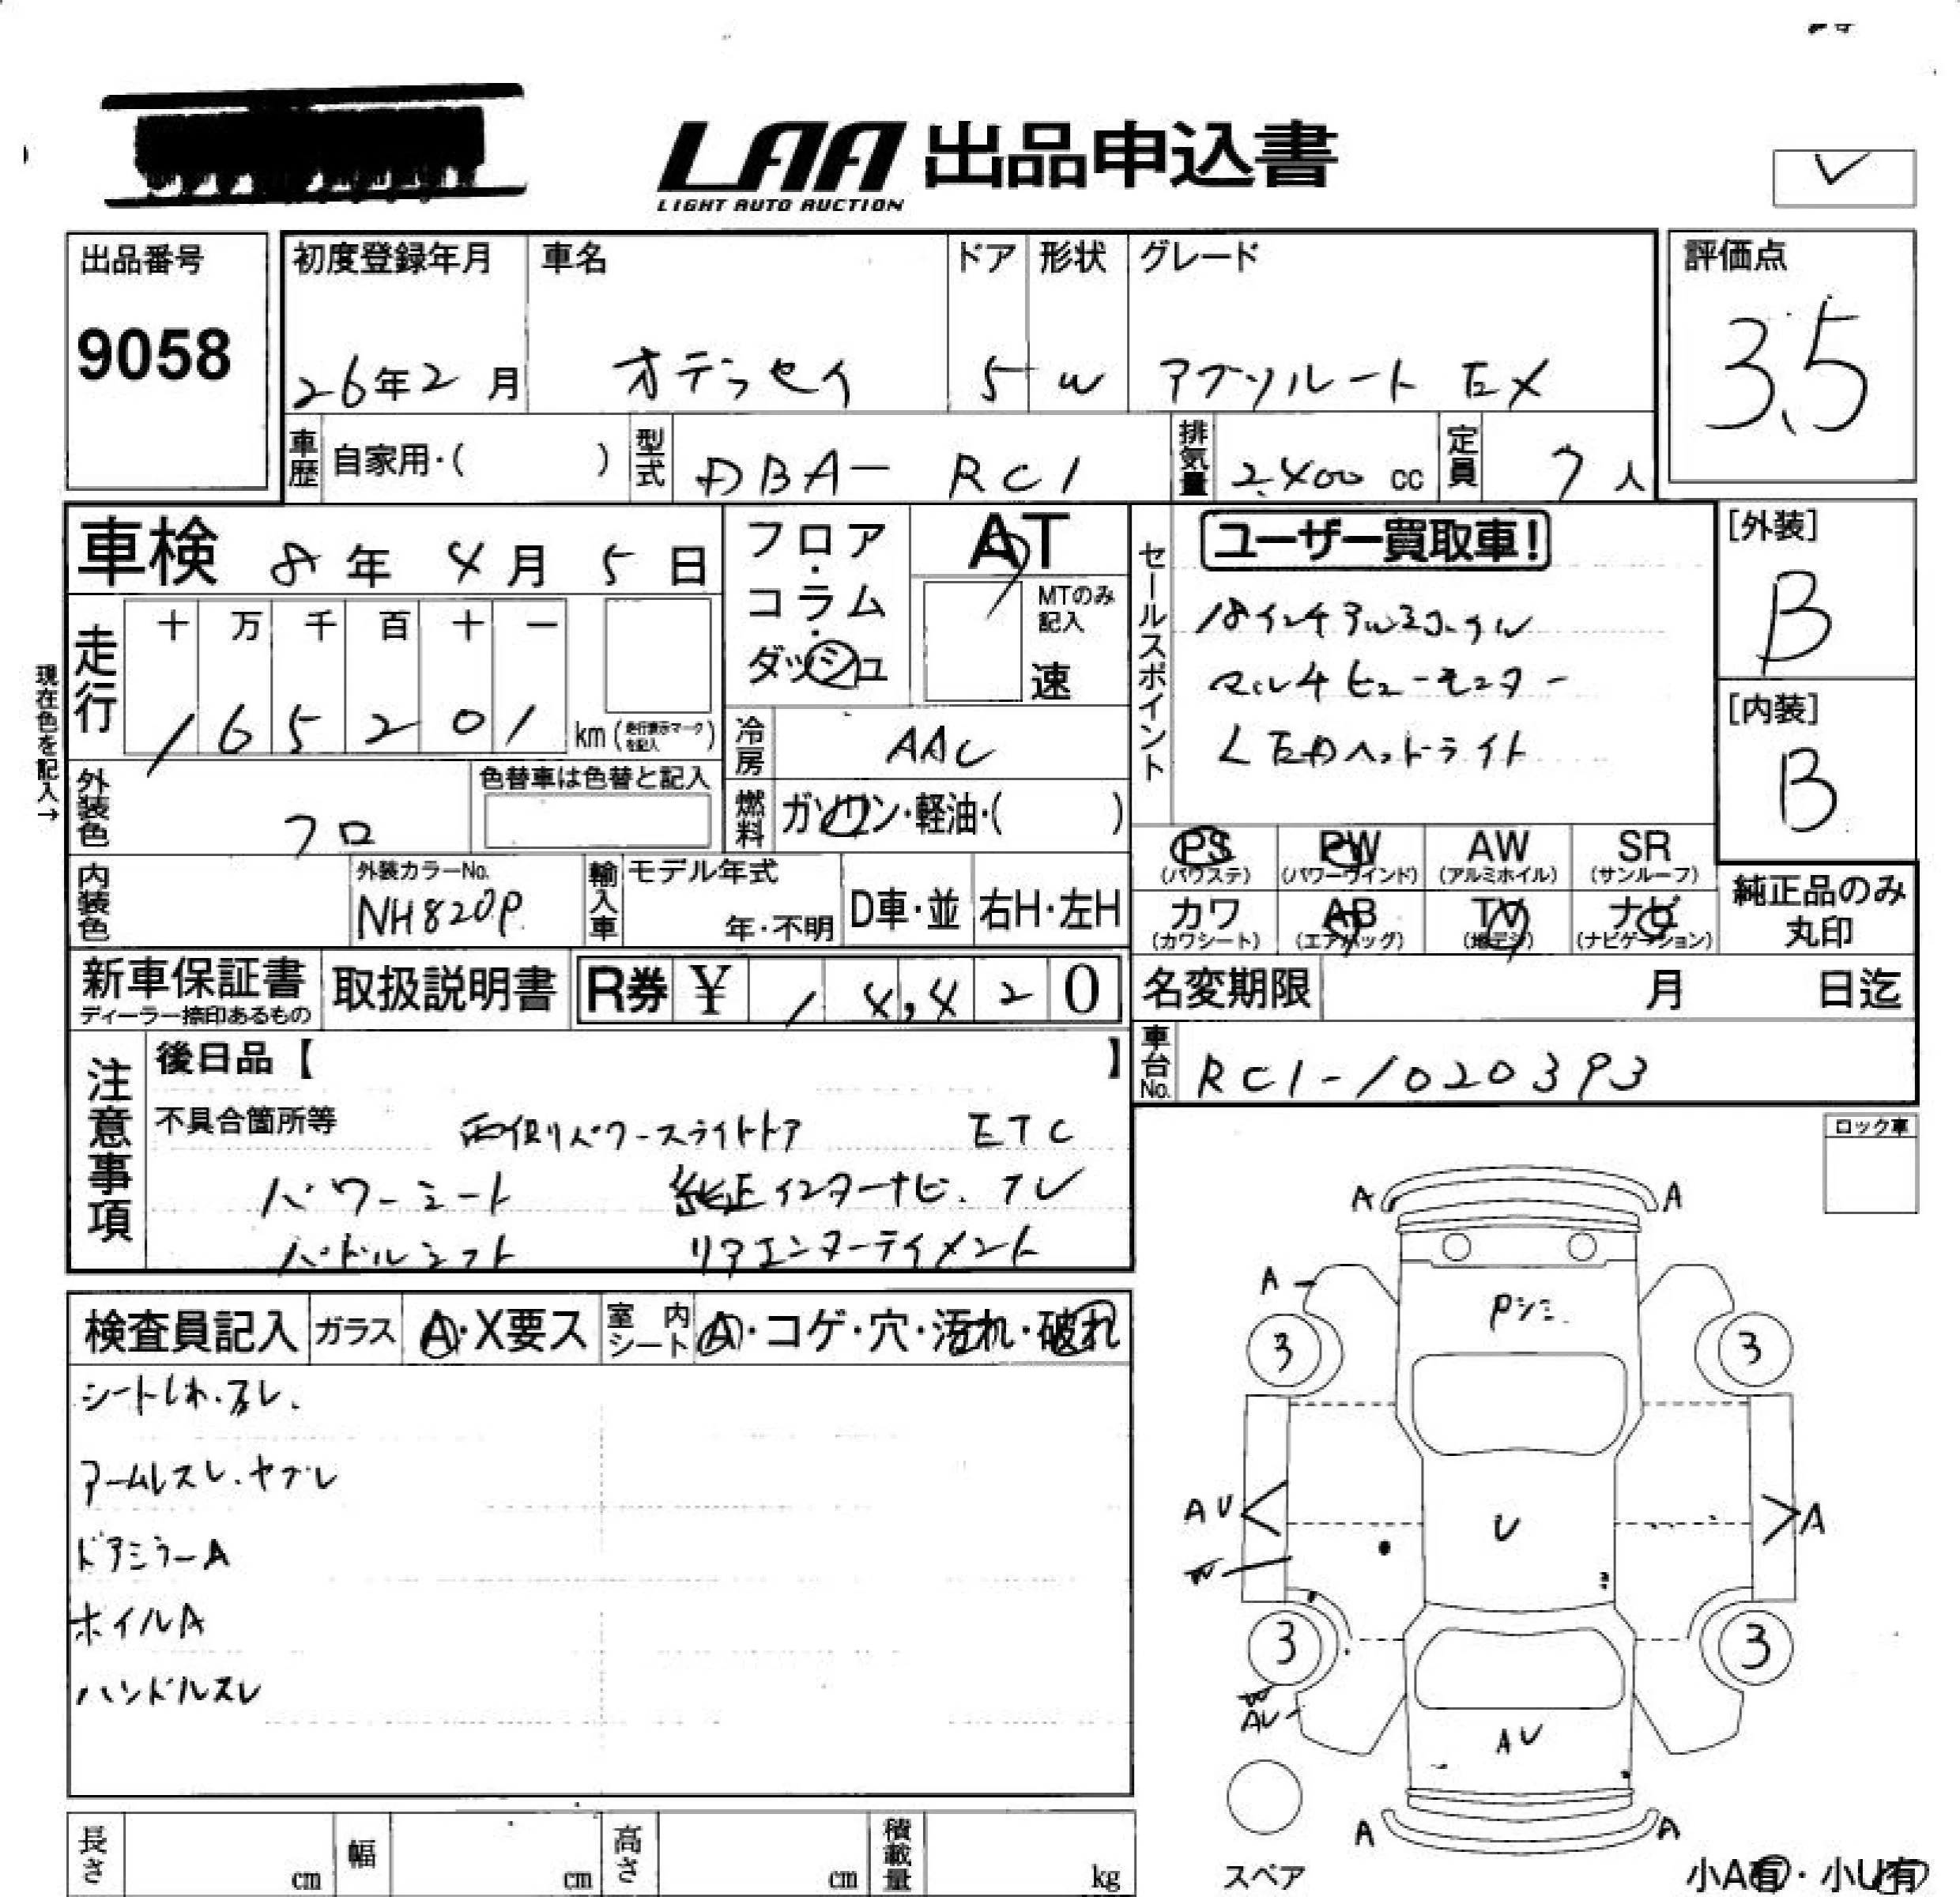 LAA 出品申込書
LIGHT AUTO AUCTION
出品番号 初度登録年月 車名 ドア 形状 グレード 評価点
9058 26年2月 オデッセイ 5 W アブソルート EX 3.5
車歴 自家用・( ) 型式 DBA-RC1 排気量 2,400 cc 定員 7人
車検 8年4月5日 フロア・コラム・ダッシュ AT
MTのみ記入 速
セールスポイント ユーザー買取車!
18インチアルミホイル
マルチビューモニター
LEDヘットライト
[外装] B
[内装] B
現在色を記入→
走行 十 万 千 百 十 一
165201 km (走行表示マークを記入)
冷房 AAC
外装色 クロ 色替車は色替と記入
燃料 ガソリン・軽油・( )
PS (パワステ) PW (パワーウインド) AW (アルミホイル) SR (サンルーフ)
カワ (カワシート) AB (エアバッグ) TV (地デジ) ナビ (ナビゲーション)
純正品のみ丸印
内装色 外装カラーNo. NH820P 輸入車 モデル年式 年・不明 D車・並 右H・左H
新車保証書 ディーラー捺印あるもの 取扱説明書 R券 ¥ 14,420
名変期限 月 日迄
車台No. RC1-1020393
注意事項 後日品【 】
不具合箇所等 両側パワースライドドア ETC
パワーシート 純正インターナビ. TV
パドルシフト リアエンターテイメント
ロック車
検査員記入 ガラス A・X要ス 室内シート A・コゲ・穴・汚れ・破れ
シートしわ.スレ.
アームレスト.ヤブレ
ドアミラーA
ホイルA
ハンドルスレ
A A
A
Pシミ
3 3
AU U A
W
3 3
W
AU AU
A A
スペア
小A有・小U有
長さ cm 幅 cm 高さ cm 積載量 kg